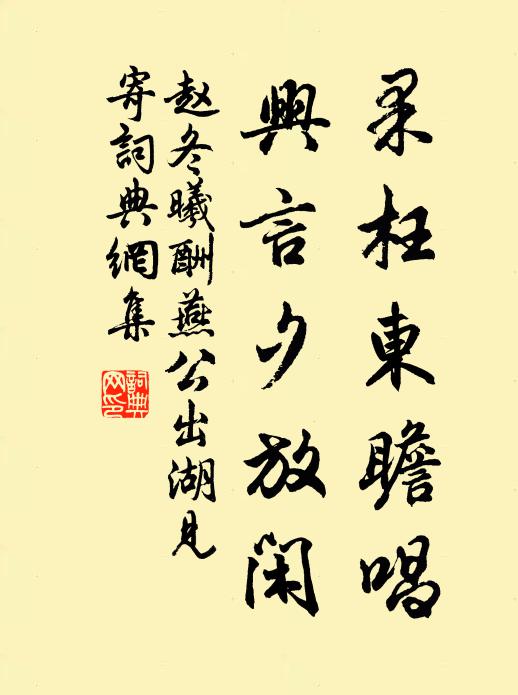 累枉東瞻唱
興言夕放閑
赵冬曦酬燕公出湖見
寄詞典網集
詞典
网印